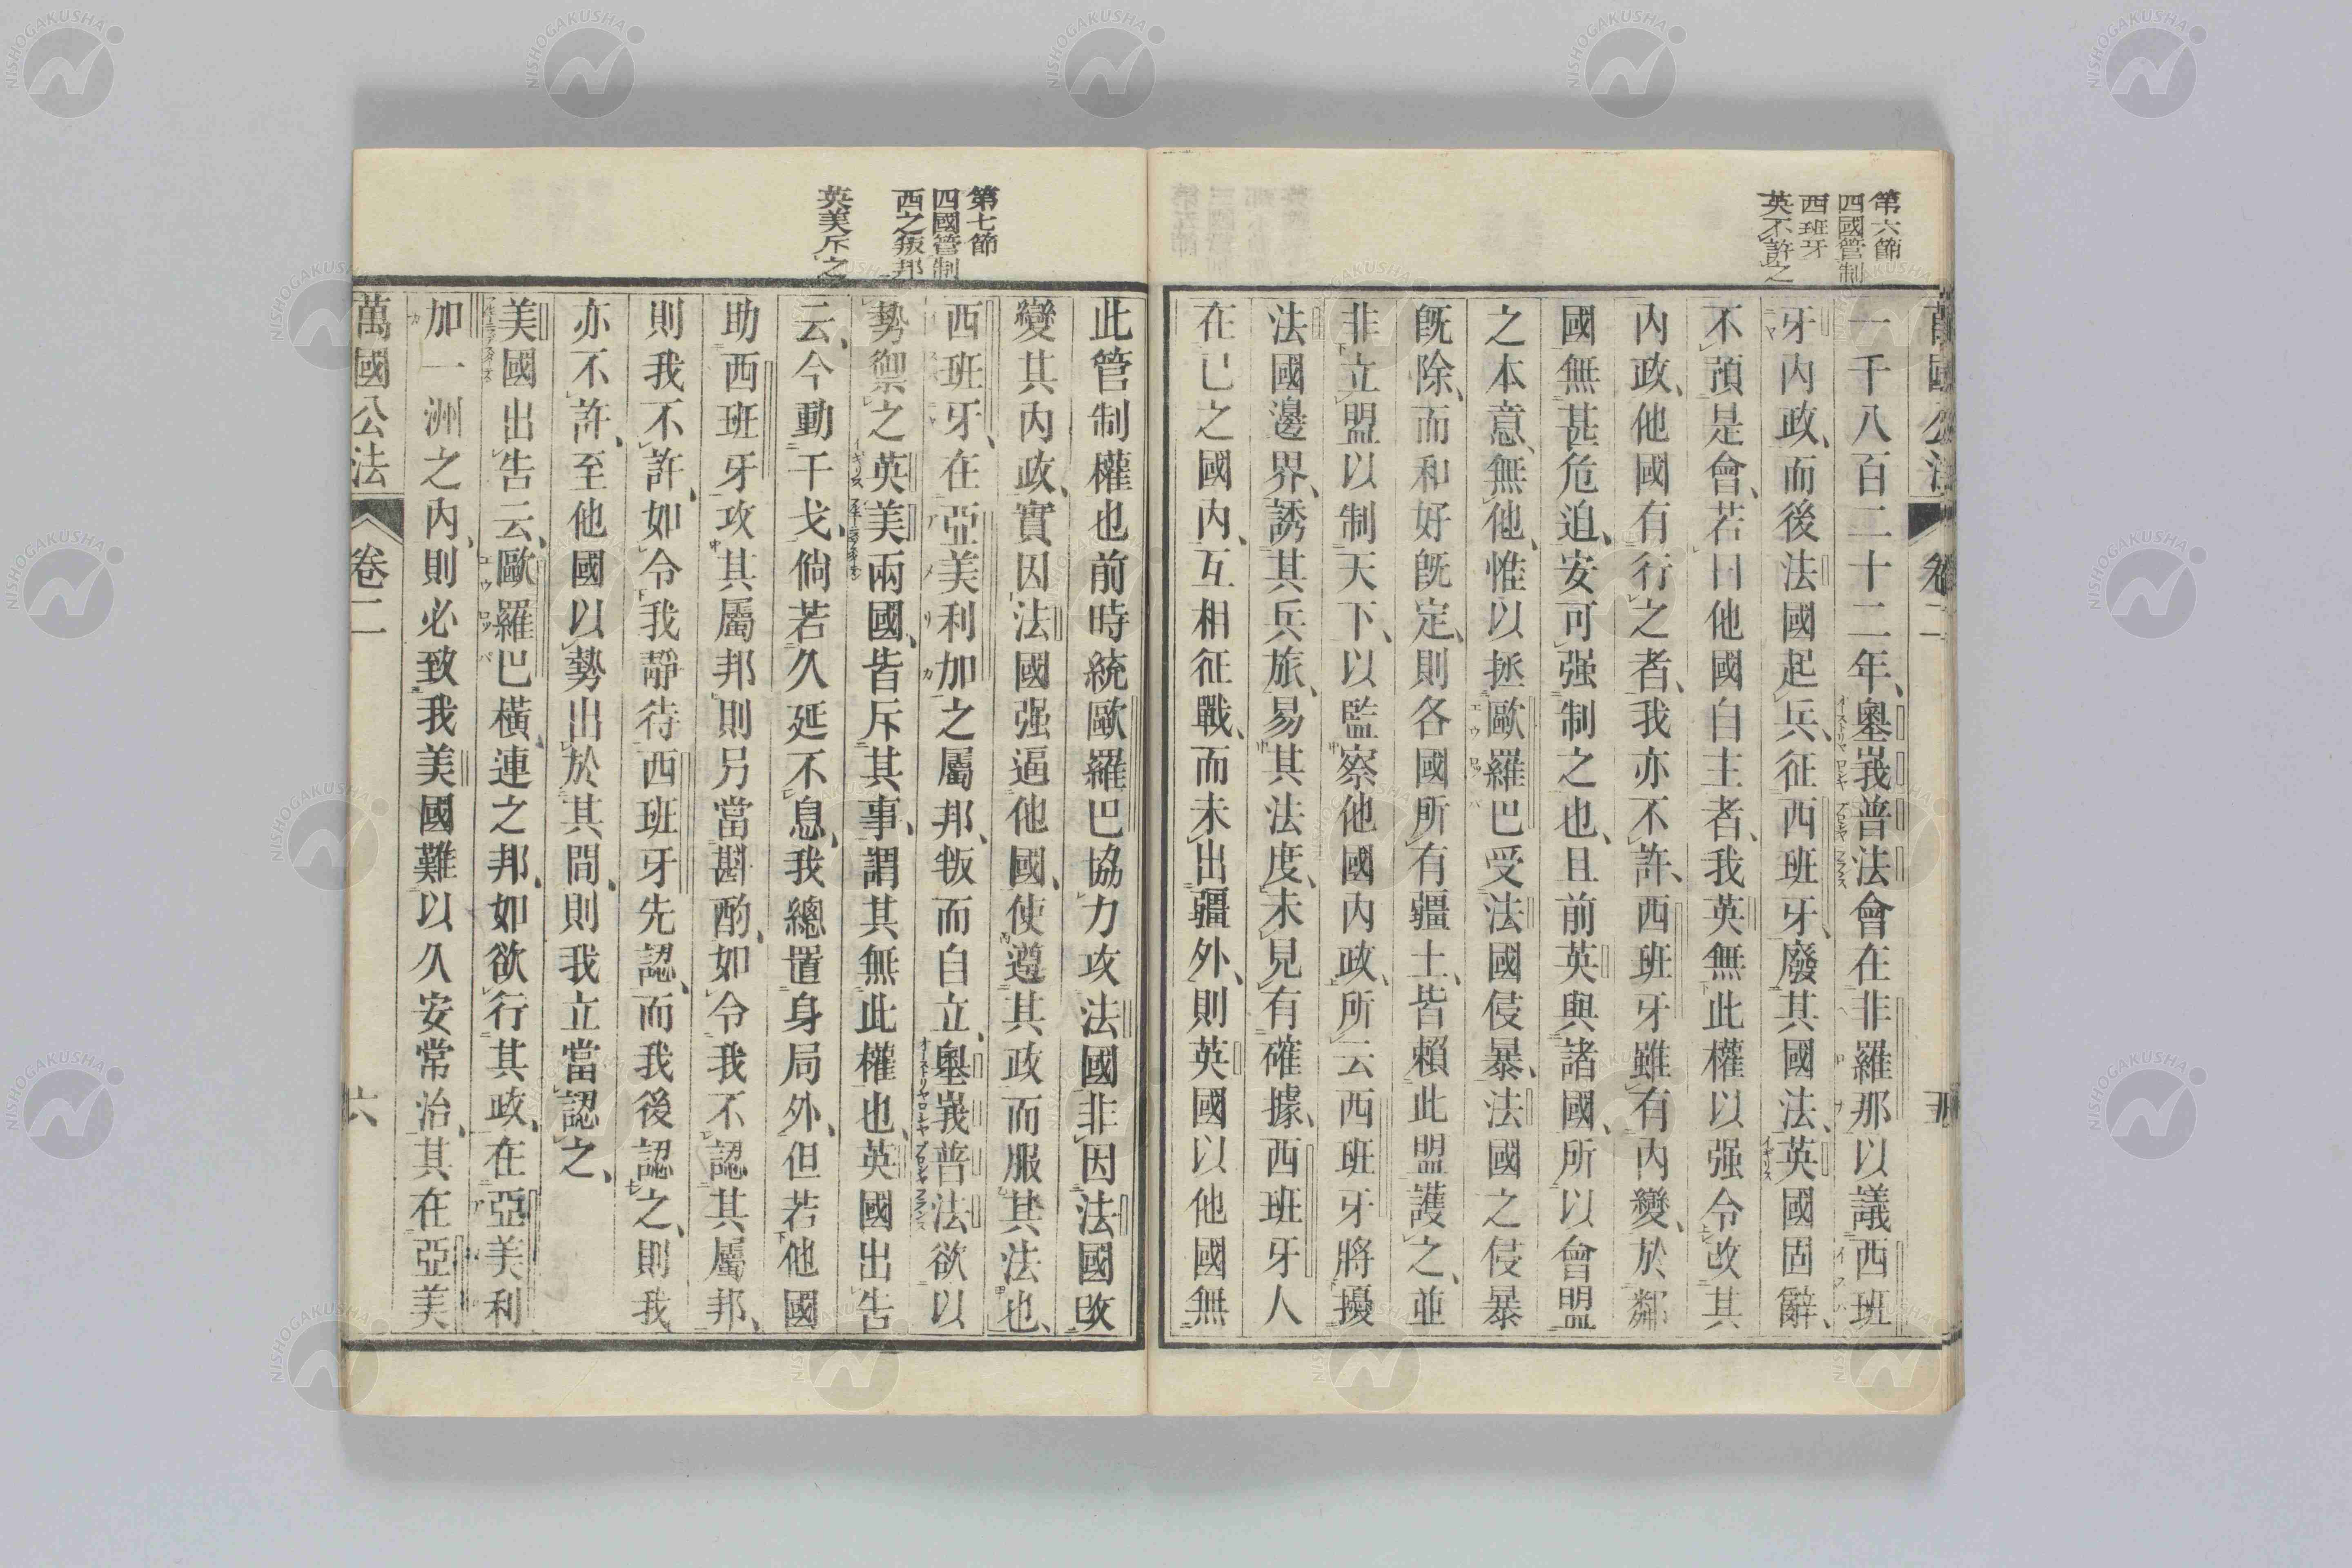 第六節
四國管制
西班牙
英不許之
萬國公法 卷二 五
一千八百二十二年、奧峩普法會在非羅那以議西班
牙內政、而後法國起兵、征西班牙、廢其國法、英國固辭、
不預是會、若曰他國自主者、我英無此權以强令改其
內政、他國有行之者、我亦不許、西班牙雖有內變、於鄰
國無甚危迫、安可强制之也、且前英與諸國、所以會盟
之本意、無他、惟以拯歐羅巴受法國侵暴、法國之侵暴
旣除、而和好旣定、則各國所有疆土、皆賴此盟護之、並
非立盟以制天下、以監察他國內政、所云西班牙將擾
法國邊界、誘其兵旅、易其法度、未見有確據、西班牙人
在已之國內、互相征戰、而未出疆外、則英國以他國無
第七節
四國管制
西之叛邦
英美斥之
此管制權也前時統歐羅巴協力攻法國非因法國改
變其內政、實因法國强逼他國、使遵其政而服其法也、
西班牙、在亞美利加之屬邦、叛而自立、奧峩普法欲以
勢禦之英美兩國、皆斥其事、謂其無此權也、英國出告
云、今動干戈、倘若久延不息、我總置身局外、但若他國
助西班牙攻其屬邦則另當斟酌、如令我不認其屬邦、
則我不許、如令我靜待西班牙先認、而我後認之、則我
亦不許、至他國以勢出於其間、則我立當認之、
美國出告云、歐羅巴橫連之邦、如欲行其政、在亞美利
加一洲之內、則必致我美國難以久安常治、其在亞美
萬國公法 卷二 六
イーストリヤ ロシヤ プロシヤ フランス
イギリス
エウロッパ
オーストリヤ ロシヤ プロシヤ フランス
NISHOGAKUSHA